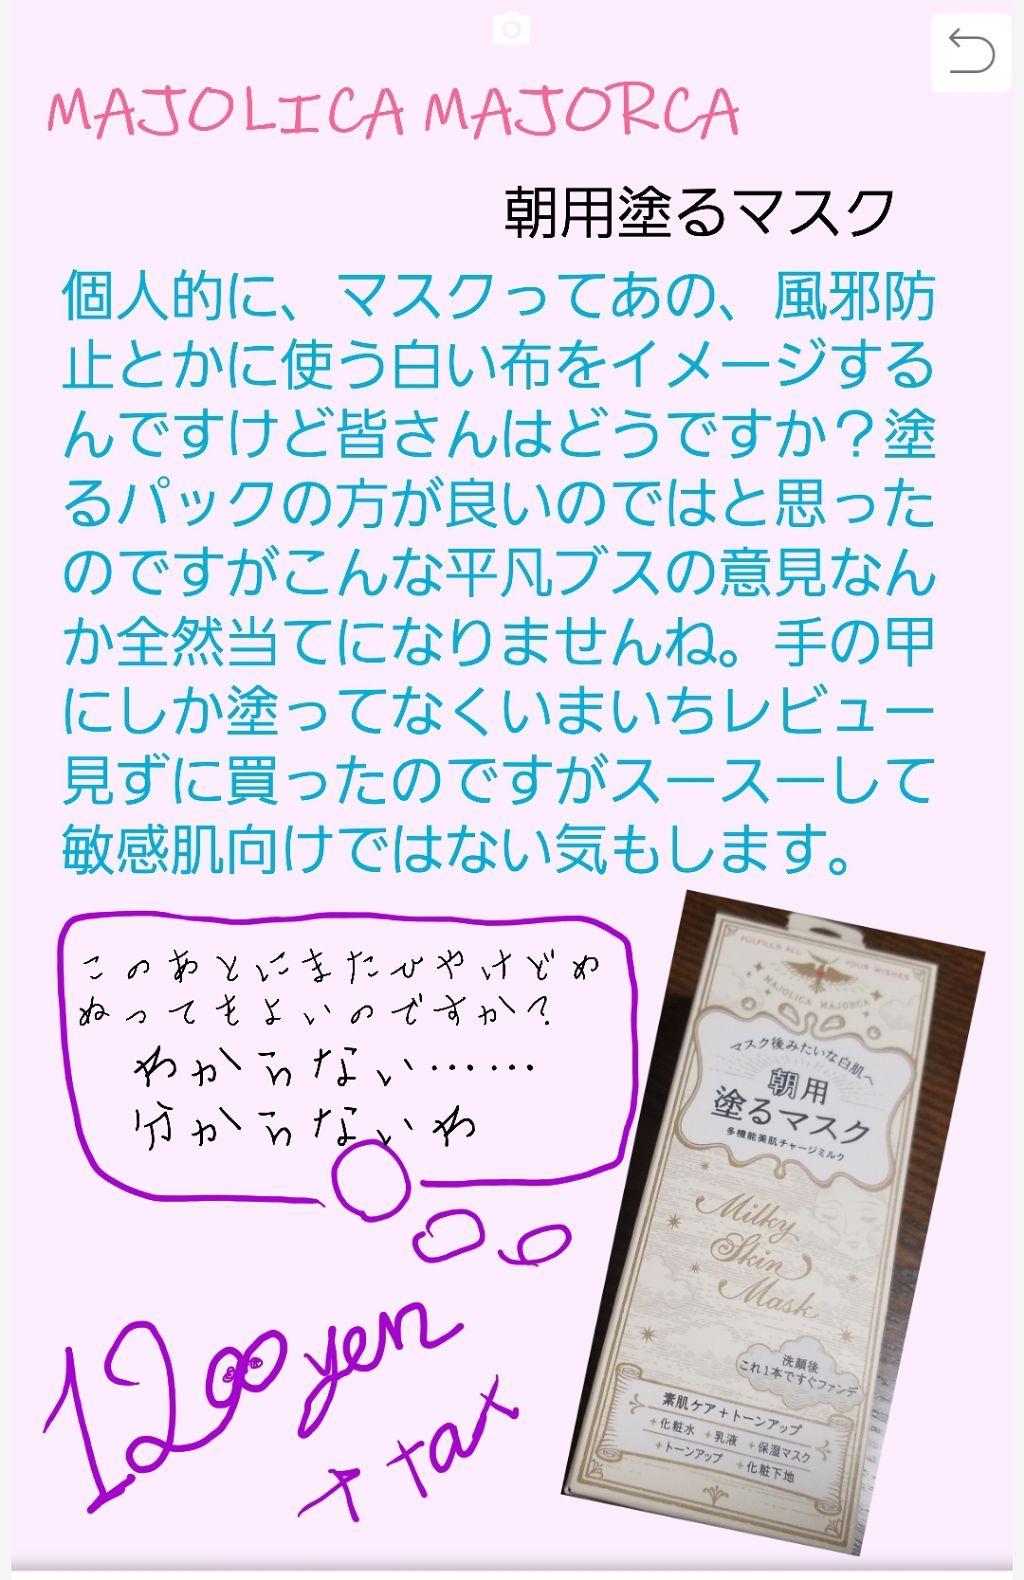 MAJOLICA MAJORCA
朝用塗るマスク
個人的に、マスクってあの、風邪防
止とかに使う白い布をイメージする
んですけど皆さんはどうですか？塗
るパックの方が良いのではと思った
のですがこんな平凡ブスの意見なん
か全然当てになりませんね。手の甲
にしか塗ってなくいまいちレビュー
見ずに買ったのですがスースーして
敏感肌向けではない気もします。
このあとにまたひやけどめ
ぬってもよいのですか?
わからない……
分からないわ
1200yen
+ tax
FULFILLS ALL YOUR WISHES
MAJOLICA MAJORCA
マスク後みたいな白肌へ
朝用
塗るマスク
多機能美肌チャージミルク
Milky
Skin
Mask
洗顔後
これ1本ですぐファンデ
素肌ケア+トーンアップ
+化粧水 +乳液 +保湿マスク
+トーンアップ +化粧下地